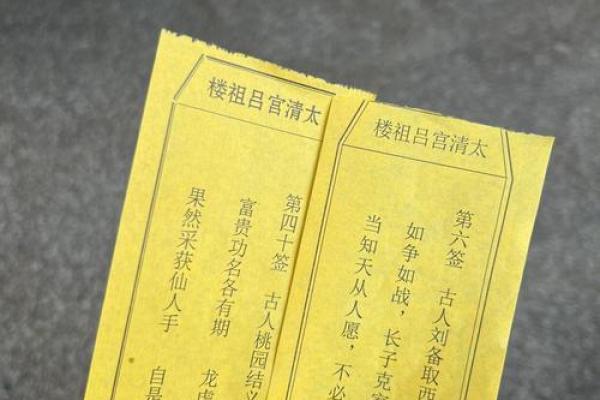 太清宫吕祖楼
第四十签 古人桃园结义
富贵功名各有期 龙
果然采获仙人手 自是
太清宫吕祖楼
第六签 古人刘备取西
如争如战，长子克
当知天从人愿，不必